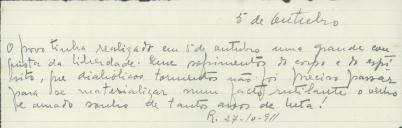 5 de Outubro
O povo tinha realizado em 5 de outubro uma grande con
quista da liberdade. Que sofrimentos do corpo e do espí
rito, que diabólicos tormentos não foi preciso passar
para se materializar num facto rutilante o velho
e amado sonho de tantos anos de luta!
R. 27-10-911